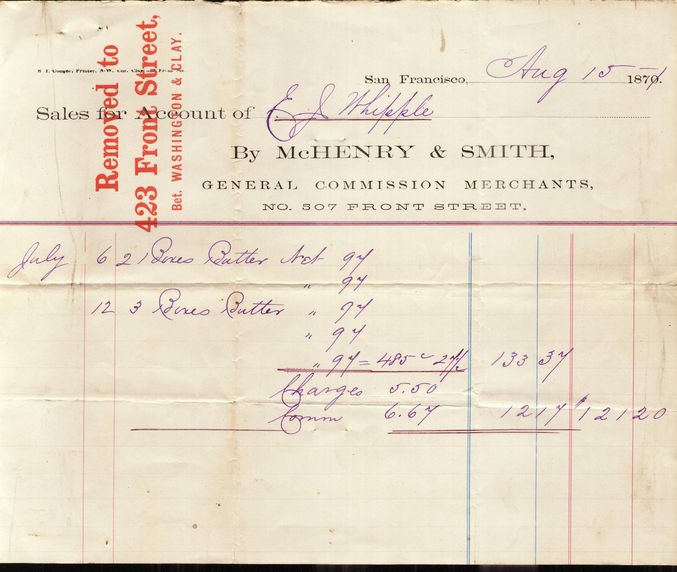 Removed to
423 Front Street,
Bet. WASHINGTON & CLAY.
San Francisco, Aug 15 1870
Sales for Account of E J Whipple
By McHENRY & SMITH,
GENERAL COMMISSION MERCHANTS,
NO. 507 FRONT STREET.
July 6 2 Boxes Butter Net 97
" 97
12 3 Boxes Butter " 97
" 97
" 97 = 485 c 27½ 133 37
Charges 5.50
Comm 6.67 12 17 $121 20